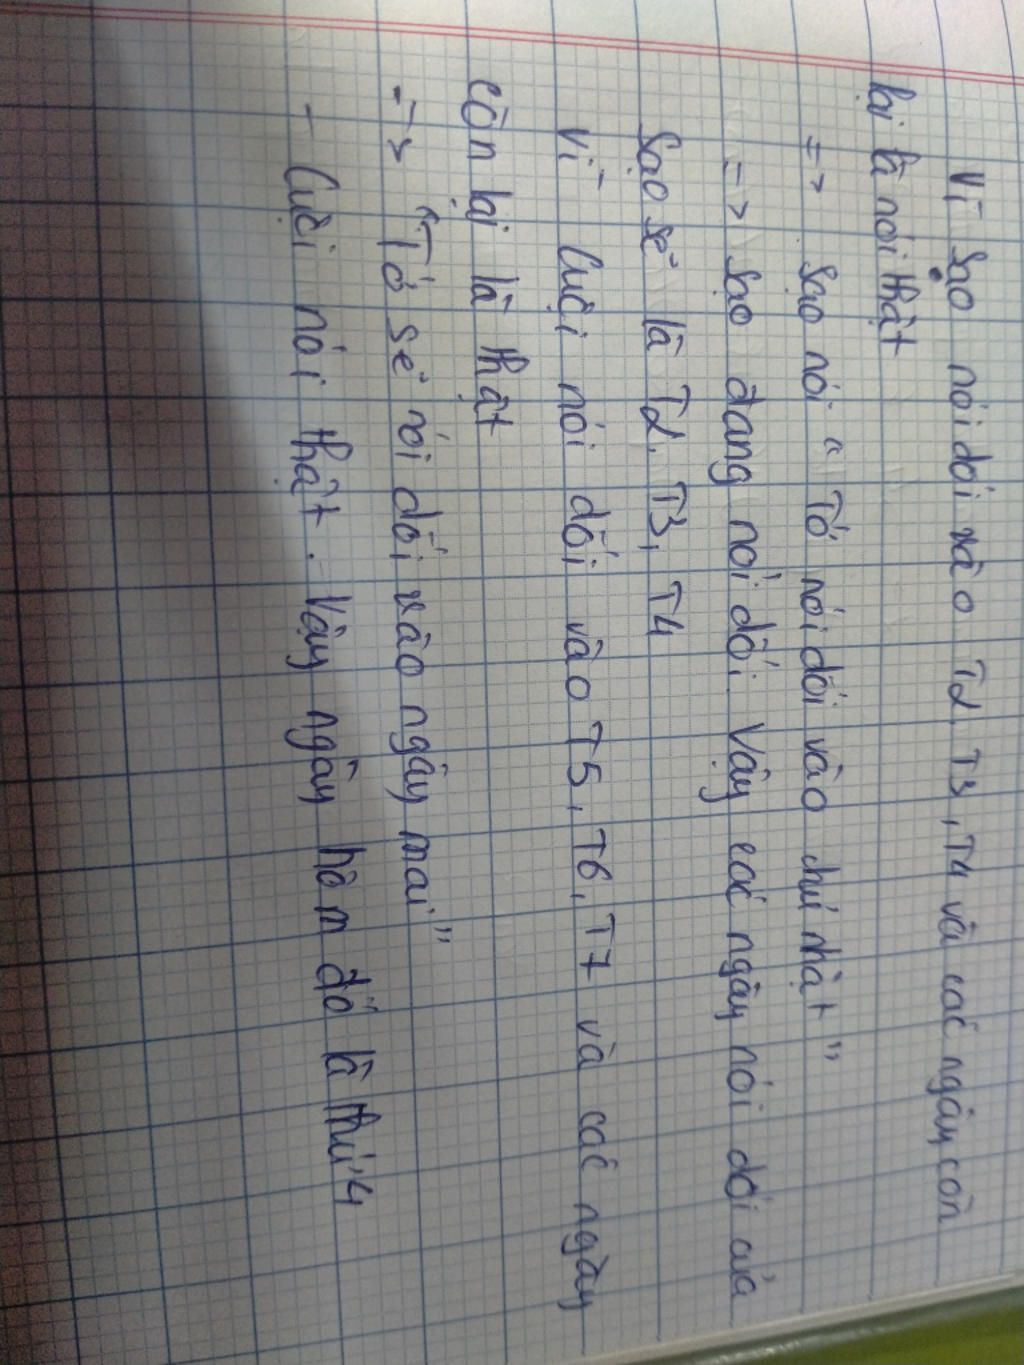 Vì Sạo nói dối vào T2, T3, T4 và các ngày còn
lại là nói thật
=> Sạo nói "Tớ nói dối vào chủ nhật"
=> Sạo đang nói dối. Vậy các ngày nói dối của
Sạo sẽ là T2, T3, T4
Vì Cuội nói dối vào T5, T6, T7 và các ngày
còn lại là thật
=> "Tớ sẽ nói dối vào ngày mai"
- Cuội nói thật. Vậy ngày hôm đó là thứ 4